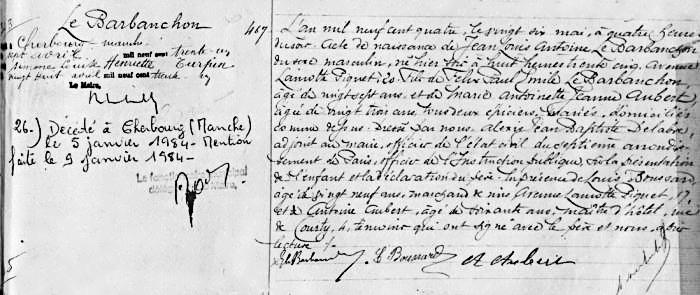 Le Barbanchon
407
Cherbourg manche
sept avril mil neuf cent trente un
Simone Louise Henriette Turpin
vingt huit avril mil neuf cent trente un
Le Maire,
26-) Décédé à Cherbourg (Manche)
le 5 janvier 1984- Mention
faite le 9 janvier 1984-
L'an mil neuf cent quatre, le vingt six mai, à quatre heures
du soir. Acte de naissance de Jean Louis Antoine Le Barbanchon
du sexe masculin, né hier à huit heures trente cinq, Avenue
Lamotte Piquet 20, fils de Félix Paul Emile Le Barbanchon
âgé de vingt sept ans, et de Marie Antoinette Jeanne Aubert
âgée de vingt trois ans tous deux épiciers, mariés, domiciliés
comme dessus. Dressé par nous, Alexis Jean Baptiste Delabre
adjoint au maire, officier de l'état civil du septième arrondis-
sement de Paris, officier de l'Instruction publique, sur la présentation
de l'enfant et la déclaration du père. En présence de Louis Boussard
âgé de vingt neuf ans, marchand de vins Avenue Lamotte Piquet, 17
et de Antoine Aubert, âgé de soixante ans, maître d'hôtel, rue
de Courty, 4, témoins qui ont signé avec le père et nous, après
lecture.
L Boussard A Aubert